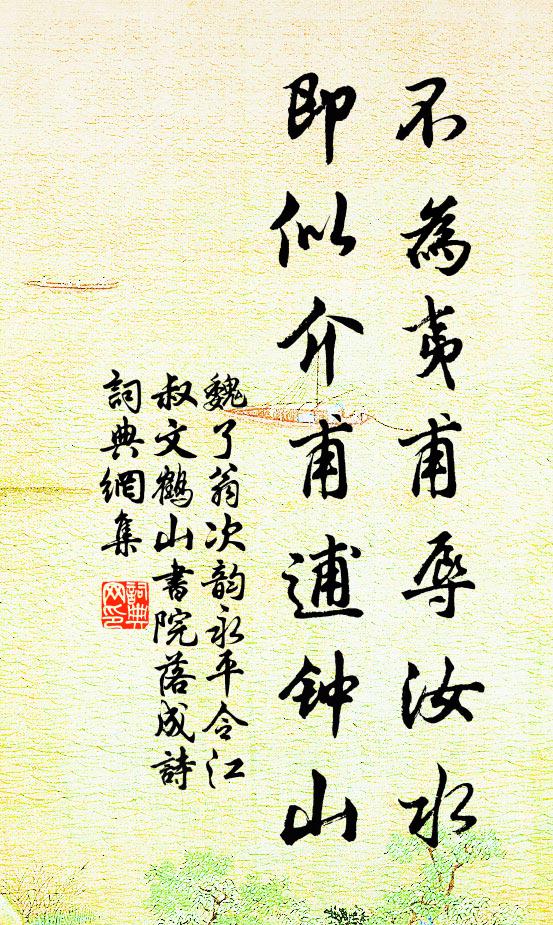 不為夷甫辱汝水
即似介甫逋钟山
魏了翁次韵永平令江
叔文鶴山書院落成詩
詞典網集
詞典
网印